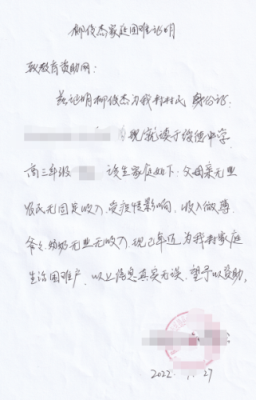 柳俊杰家庭困难证明
致教育资助网：
兹证明柳俊杰为我村村民 身份证：
现就读于绥德中学
高三年级 该生家庭如下：父母亲无业
居民无固定收入，受疫情影响，收入微薄
爷爷奶奶无业无收入，现已年迈，为我村家庭
生活困难户，以上信息真实无误，望予以资助。
2022. .27